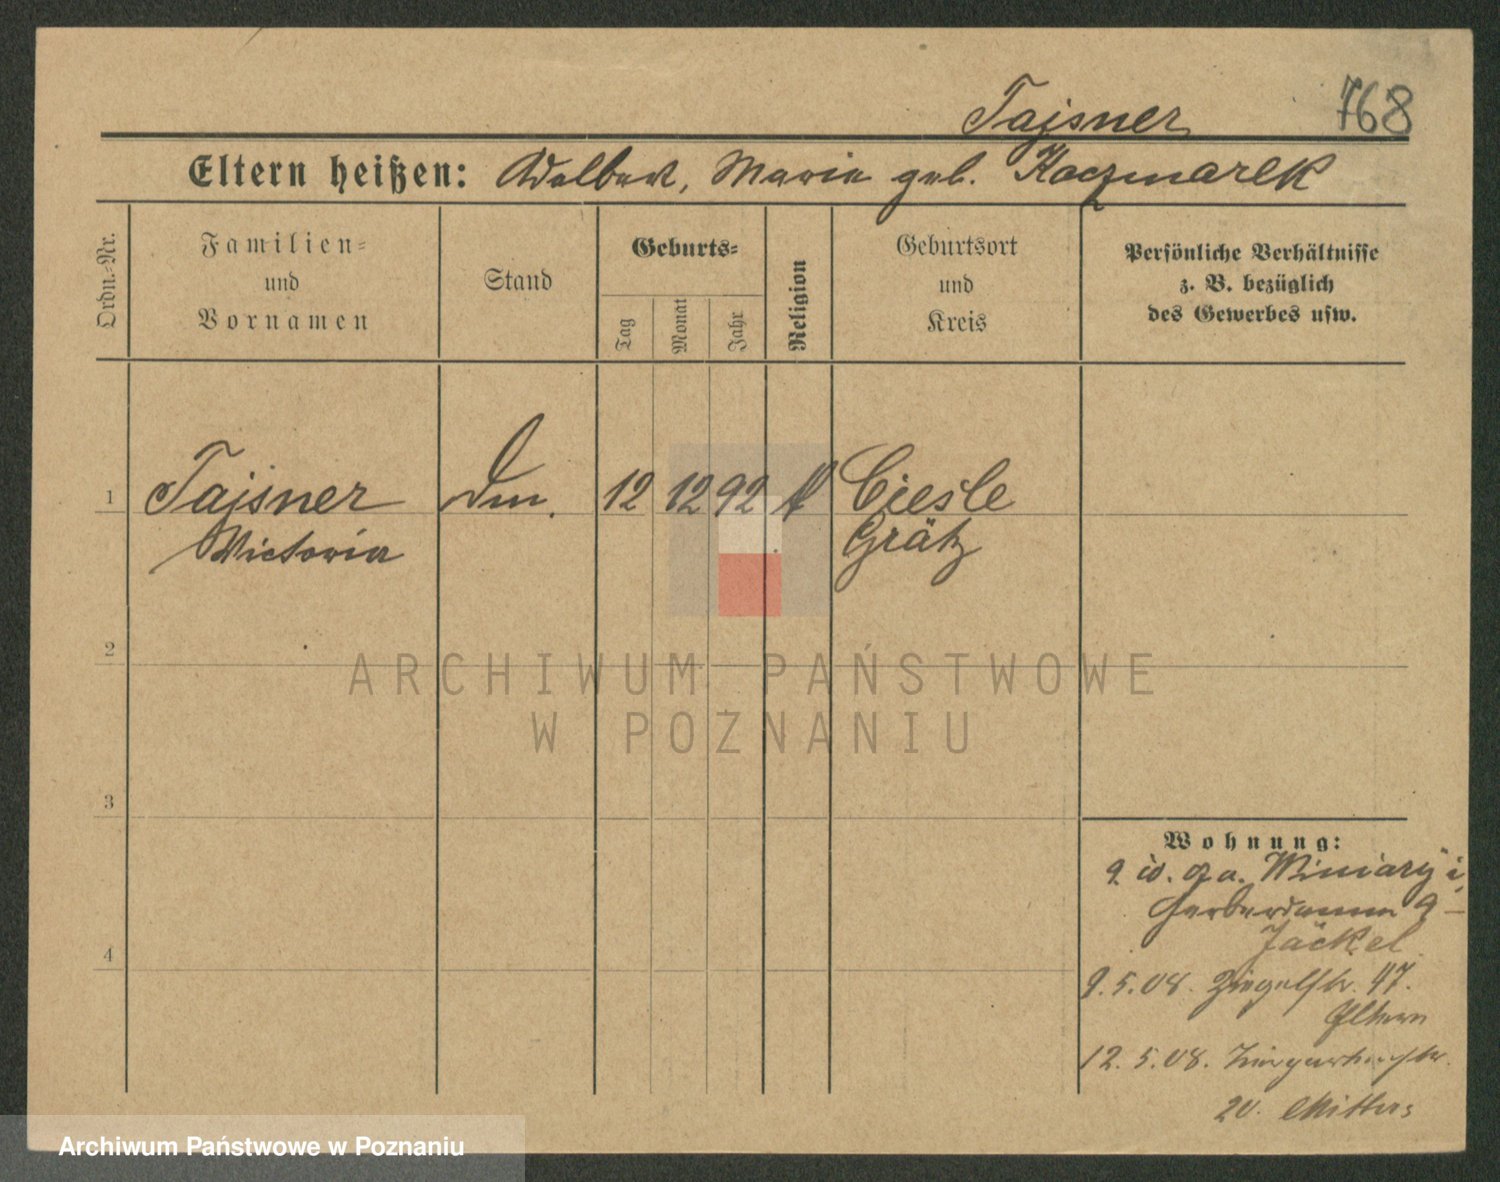 Tajsner 768
Eltern heißen: Adalbert, Maria geb. Kaczmarek
Ordn.-Nr.
Familien-
und
Vornamen
Stand
Geburts-
Tag
Monat
Jahr
Religion
Geburtsort
und
Kreis
Persönliche Verhältnisse
z. B. bezüglich
des Gewerbes usw.
1 Tajsner 12 12 92 Ciesle
Victoria Grätz
2
ARCHIWUM PAŃSTWOWE
W POZNANIU
3
Wohnung:
Winiary
Gerberdamm 9
Jäckel
4
9.5.08. Ziegelstr. 47.
Eltern
12.5.08. Tiergartenstr.
20.
Archiwum Państwowe w Poznaniu